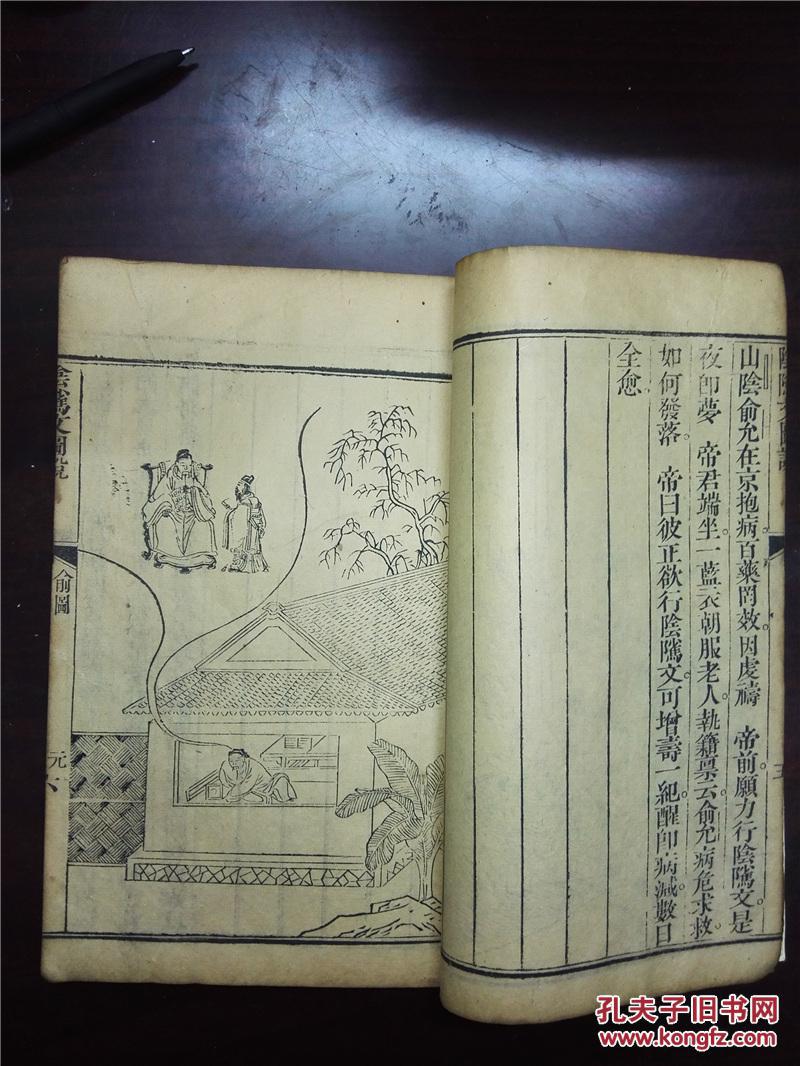 陰隲文圖說
山陰俞允在京抱病百藥罔效。因虔禱 帝前願力行陰隲文。是
夜卽夢 帝君端坐。一藍衣朝服老人。執籍稟云。俞允病危求救。
如何發落。 帝曰彼正欲行陰隲文。可增壽一紀。醒卽病減。數日
全愈
陰騭文圖說
前圖
元
孔夫子旧书网
www.kongfz.com